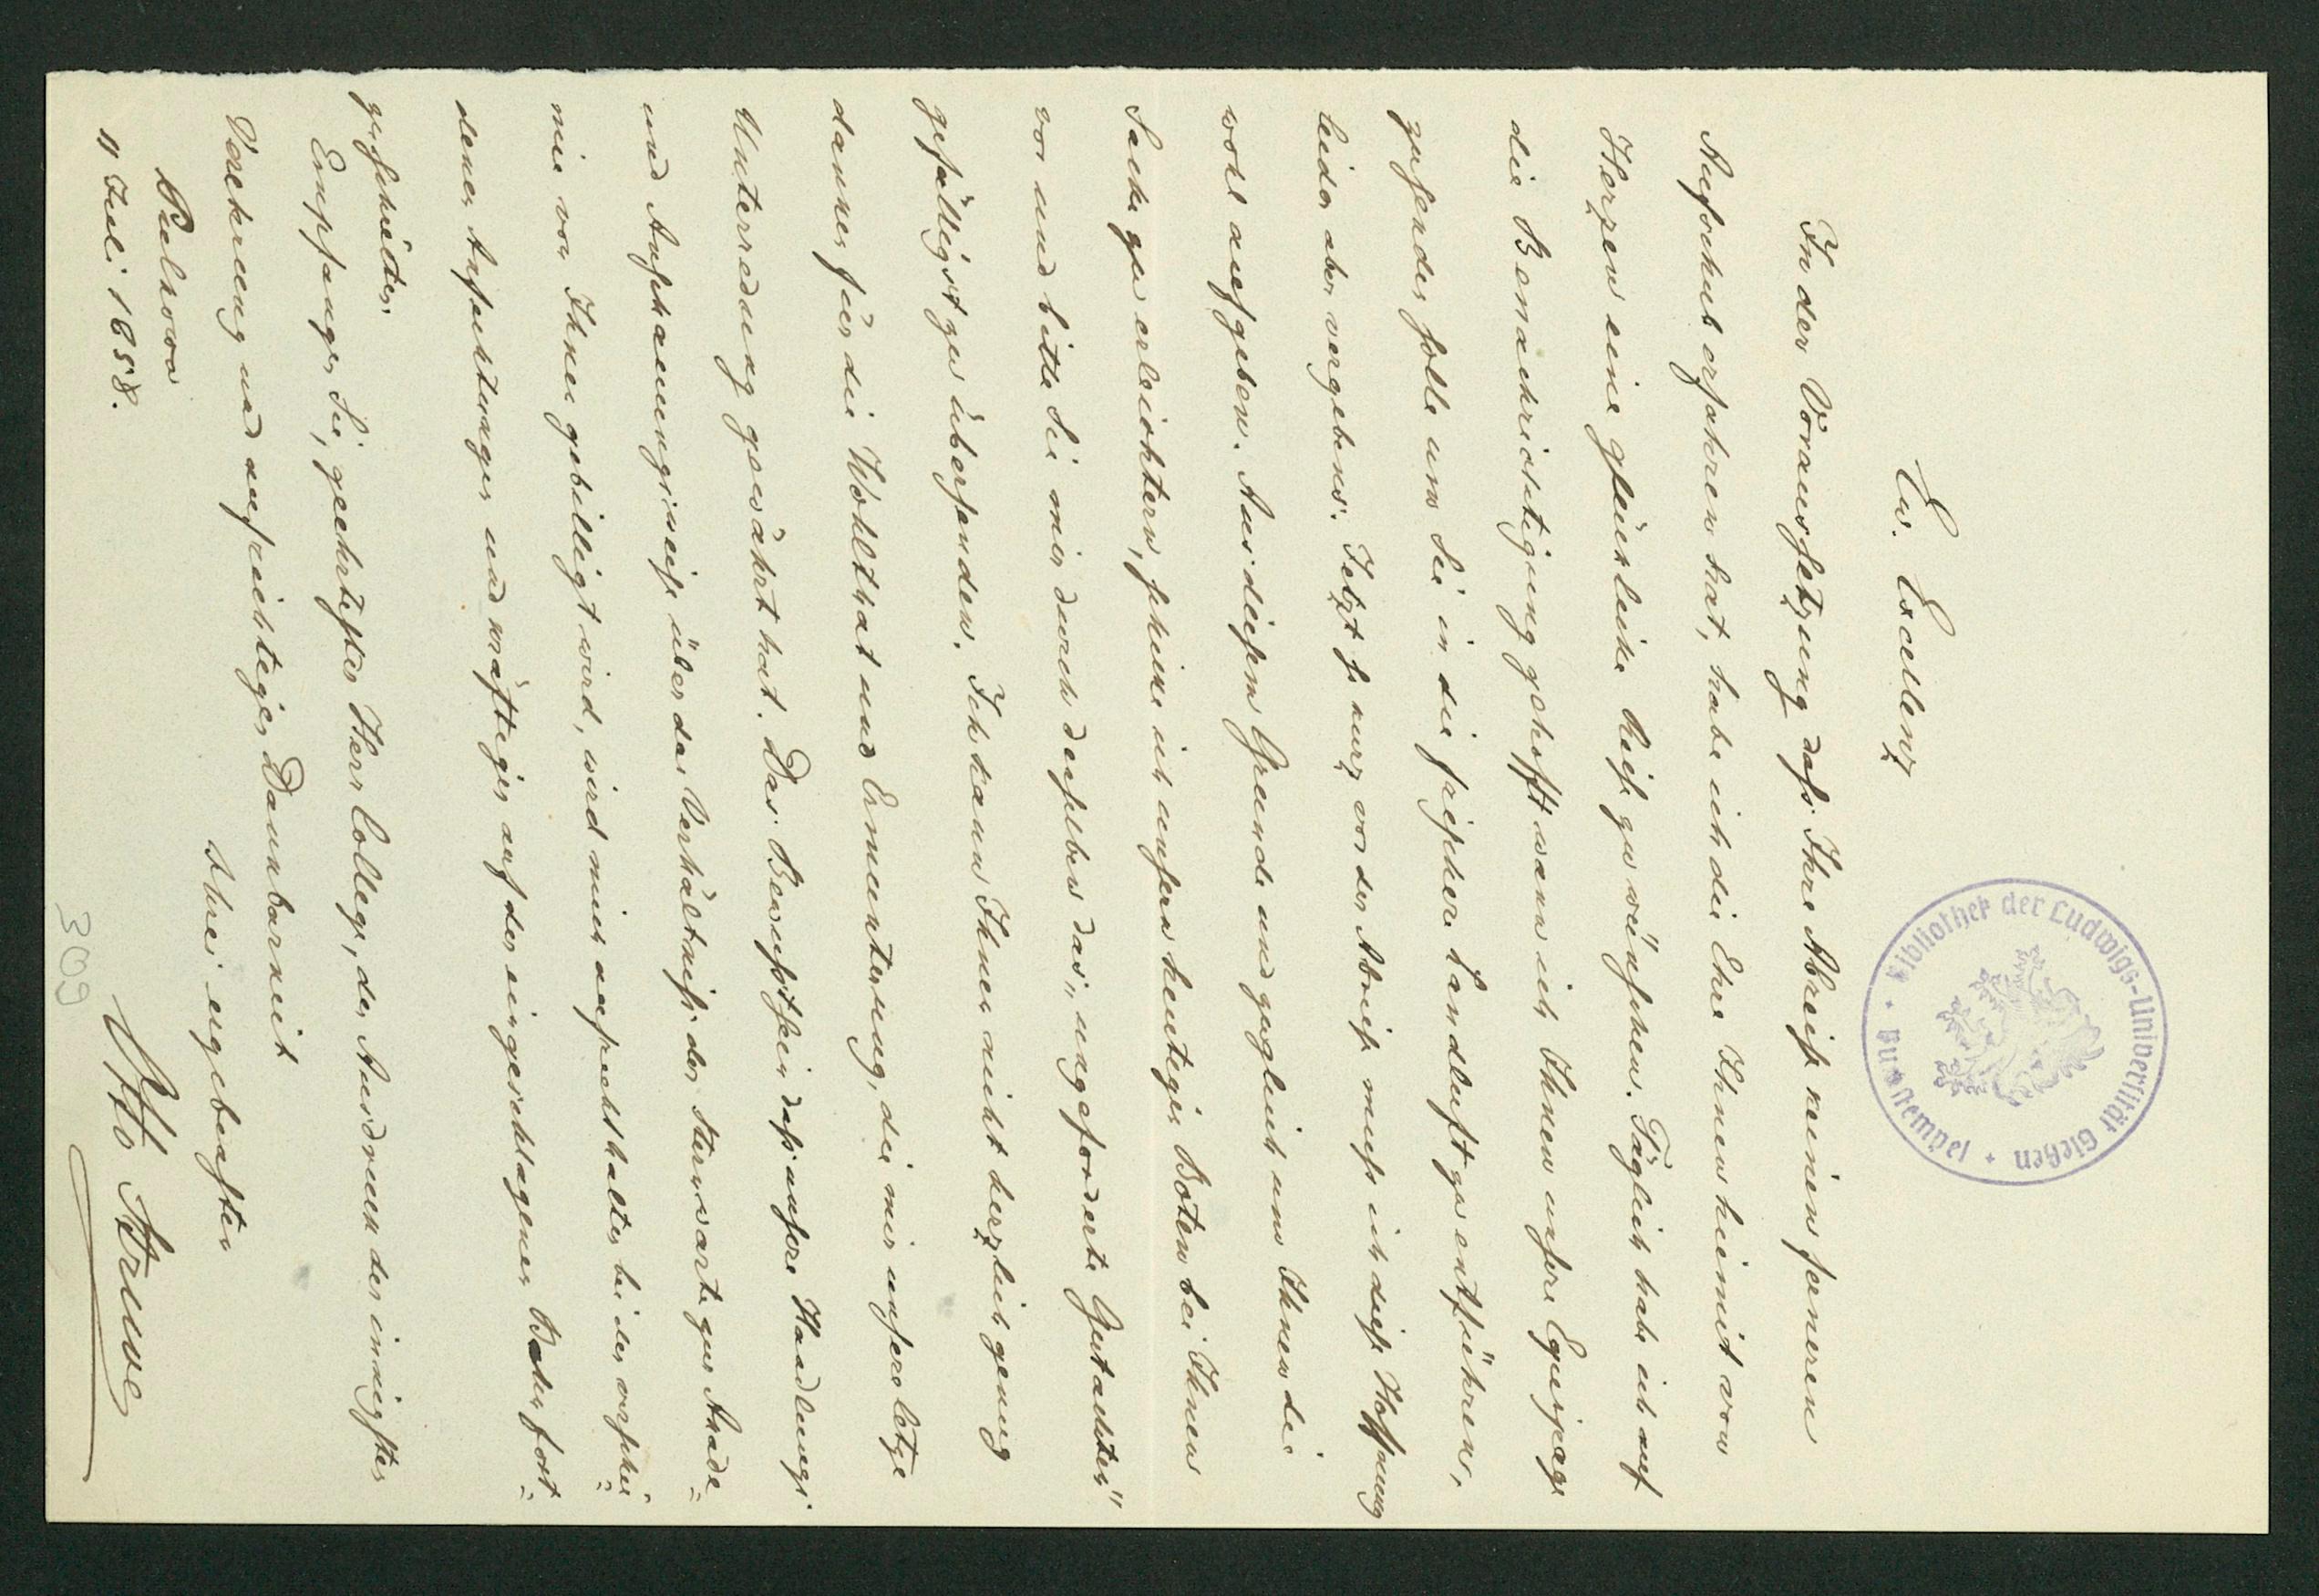 Ew. Excellenz
In der Voraussetzung dass Ihre Abreise keinen ferneren
Aufschub erfahren hat, habe ich die Ehre Ihnen hiemit von
Herzen eine glückliche Reise zu wünschen. Täglich habe ich auf
die Benachrichtigung gehofft wann ich Ihnen unsere Equipage
zusenden solle um Sie in die frischere Landluft zu entführen,
leider aber vergebens. Jetzt so kurz vor der Abreise muss ich diese Hoffnung
wohl aufgeben. Aus diesem Grunde und zugleich um Ihnen die
Sache zu erleichtern, schicke ich unsern heutigen Boten bei Ihnen
vor und bitte Sie mir durch denselben das "ungeforderte Gutachten"
gefälligst zu übersenden. Ich kann Ihnen nicht herzlich genug
danken für die Wohlthat und Ermunterung, die mir unsere letzte
Unterredung gewährt hat. Das Bewusstsein dass unsere Handlungs
und Anschauungsweise über das Verhältniss der Sternwarte zur Akade=
mie von Ihnen gebilligt wird, wird mich aufrecht halten bei den verschie=
denen Anfechtungen und kräftigen auf der eingeschlagenen Bahn fort=
zuschreiten
Empfangen Sie, geehrtester Herr College, den Ausdruck der innigsten
Verehrung und aufrichtigen Dankbarkeit
Ihres ergebensten
Otto Struve
Pulkowa
11 Juli 1858.
309
Bibliothek der Ludwigs-Universität Gießen